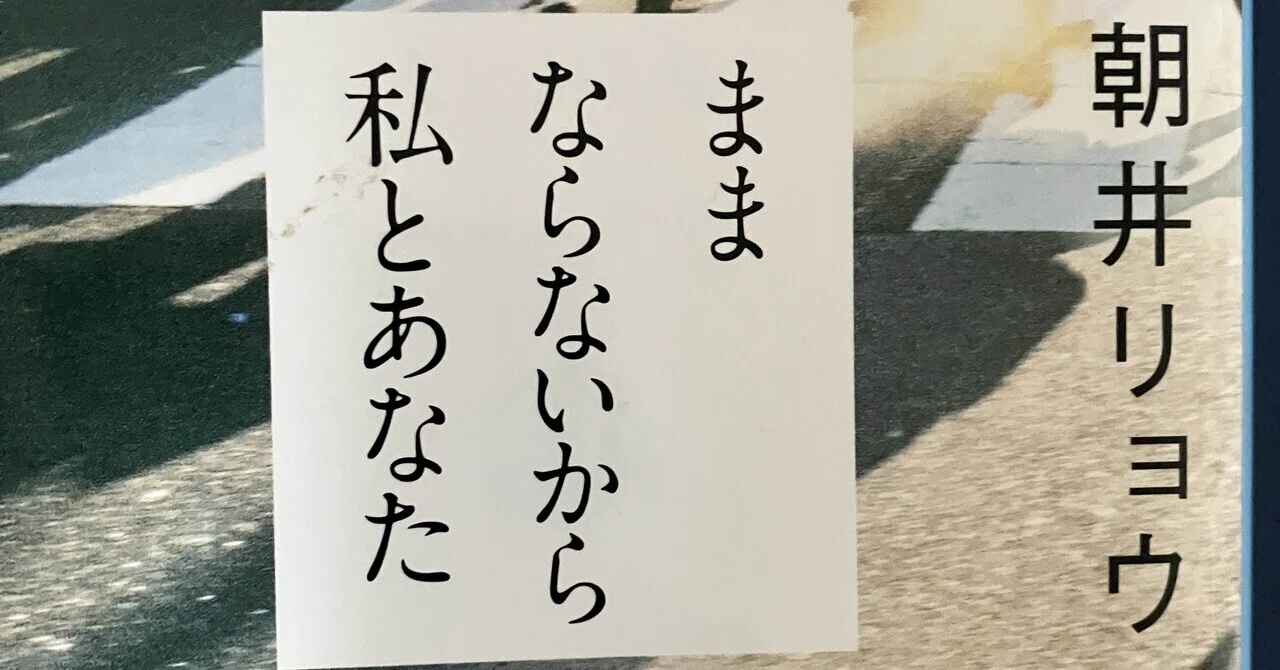 朝井リョウ
まま
ならないから
私とあなた